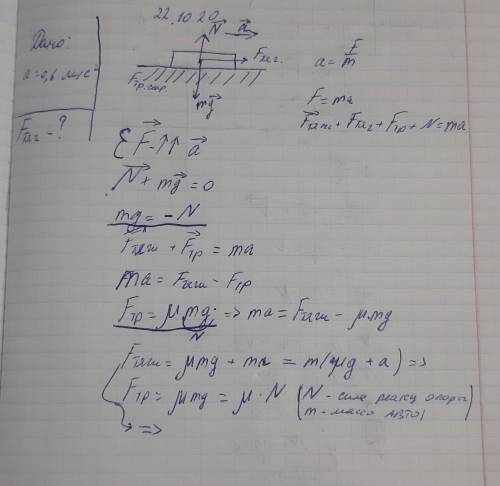 22.10.20
Дано:
a = 0,6 м/с²
Fтяг - ?
N⃗ a⃗
Fтяг.
Fтр.
mg⃗
a = F/m
F = ma
+ Fтяг + Fтр + N = ma
ΣF⃗ ↑↑ a⃗
N⃗ + mg⃗ = 0
mg = - N
Fтяж + F⃗тр = ma
ma = Fтяж - Fтр
Fтр = μmg; => ma = Fтяж - μmg
N
Fтяж = μmg + ma = m(μg + a) =>
Fтр = μmg = μ · N (N - сила реакц опоры
m - масса авто)
=>